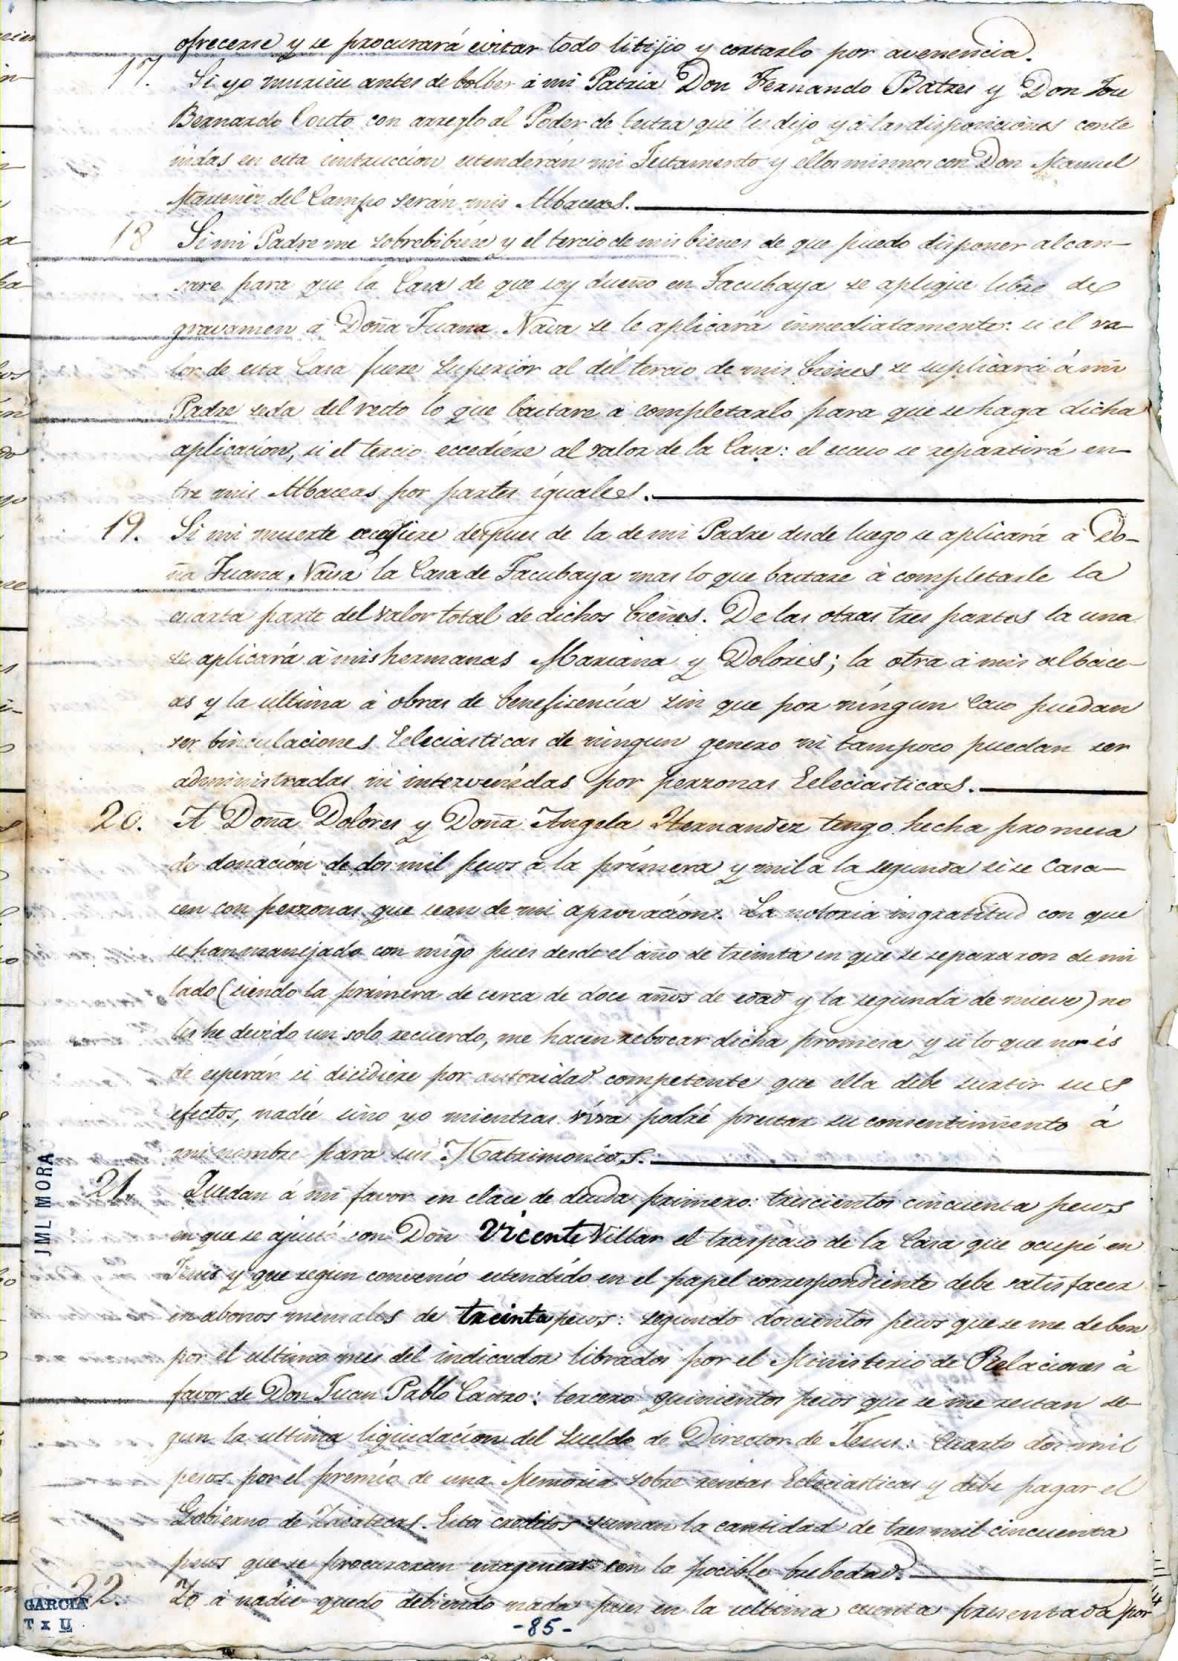 ofrecerse y se procurará evitar todo litijio y cortarlo por avenencia.
17. Si yo muriere antes de bolber á mi Patria Don Fernando Batres y Don José
Bernardo Couto con arreglo al Poder de testar que les dejo y á las disposiciones conte
nidas en esta instruccion estenderán mi Testamento y ellos mismos con Don Manuel
Martinez del Campo serán mis Albaceas.
18 Si mi Padre me sobrebibiere y el tercio de mis bienes de que puedo disponer alcan-
zare para que la Casa de que soy dueño en Tacubaya se aplique libre de
gravamen á Doña Juana Nava se le aplicará inmediatamente: si el va-
lor de esta Casa fuere superior al del tercio de mis bienes se suplicará á mi
Padre ceda del resto lo que bastare á completarlo para que se haga dicha
aplicación, si el tercio eccediere al valor de la Casa: el ecceso se repartirá en-
tre mis Albaceas por partes iguales.
19. Si mi muerte acaesiere despues de la de mi Padre desde luego se aplicará á Do-
ña Juana Nava la Casa de Tacubaya mas lo que bastare á completarle la
cuarta parte del valor total de dichos bienes. De las otras tres partes la una
se aplicará á mis hermanas Mariana y Dolores; la otra á mis albace-
as y la ultima á obras de beneficencia sin que por ningun caso puedan
ser binculaciones Eclesiasticas de ningun genero ni tampoco puedan ser
administradas ni intervenidas por perzonas Eclesiasticas.
20. A Doña Dolores y Doña Angela Hernandez tengo hecha promesa
de donación de dos mil pesos á la primera y mil a la segunda si se casa-
sen con perzonas que sean de mi aprovacion. La notoria ingratitud con que
se han manejado con migo pues desde el año de treinta en que se separaron de mi
lado (siendo la primera de cerca de doce años de edad y la segunda de nueve) no
les he devido un solo recuerdo, me hacen rebocar dicha promesa y si lo que no és
de esperár si disidiere por autoridad competente que ella debe surtir sus
efectos, nadie sino yo mientras viva podré prestar su consentimiento á
mi nombre para sus Matrimonios.
21. Quedan á mi favor en clace de deuda primero: trescientos cincuenta pesos
en que se ajustó con Don Vicente Villar el traspaso de la Casa que ocupé en
y que segun convenio estendido en el papel correspondiente debe satisfacer
en abonos mensales de treinta pesos: segundo doscientos pesos que se me deben
por el ultimo mes del indicador librados por el Ministerio de Relaciones á
favor de Don Juan Pablo Castro: tercero quinientos pesos que se me restan se-
gun la ultima liquidacion del sueldo de Director de Jesus: cuarto dos mil
pesos por el premio de una Memoria sobre rentas Eclesiasticas y debe pagar el
Gobierno de Zacatecas. Estos creditos suman la cantidad de tres mil cincuenta
pesos que se procuraran enagenar con la pocible brebedad.
22. Yo á nadie quedo debiendo nada pues en la ultima cuenta presentada por
-85-
JML MORA
GARCIA
T x U